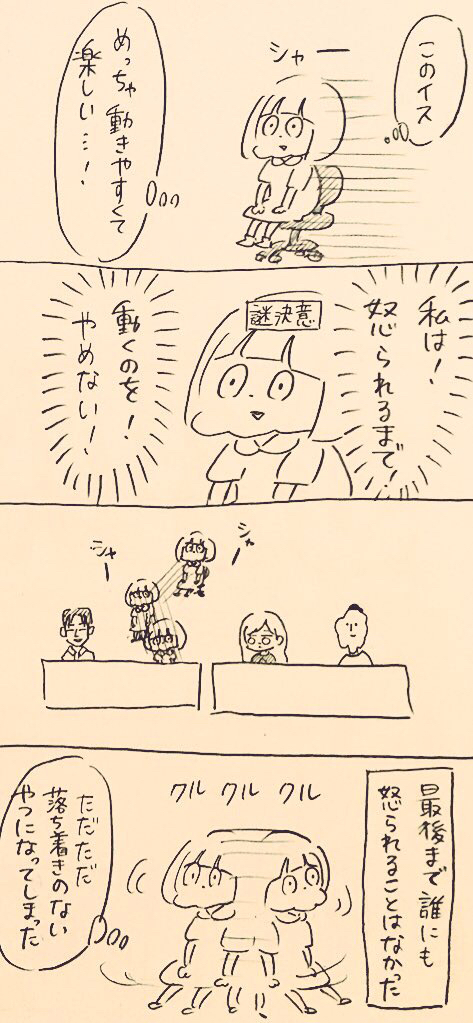 このイス
シャー
めっちゃ動きやすくて
楽しい…！
私は！
怒られるまで！
謎決意
動くのを！
やめない！
シャー
シャー
最後まで誰にも
怒られることはなかった
クル クル クル
ただただ
落ち着きのない
やつになってしまった